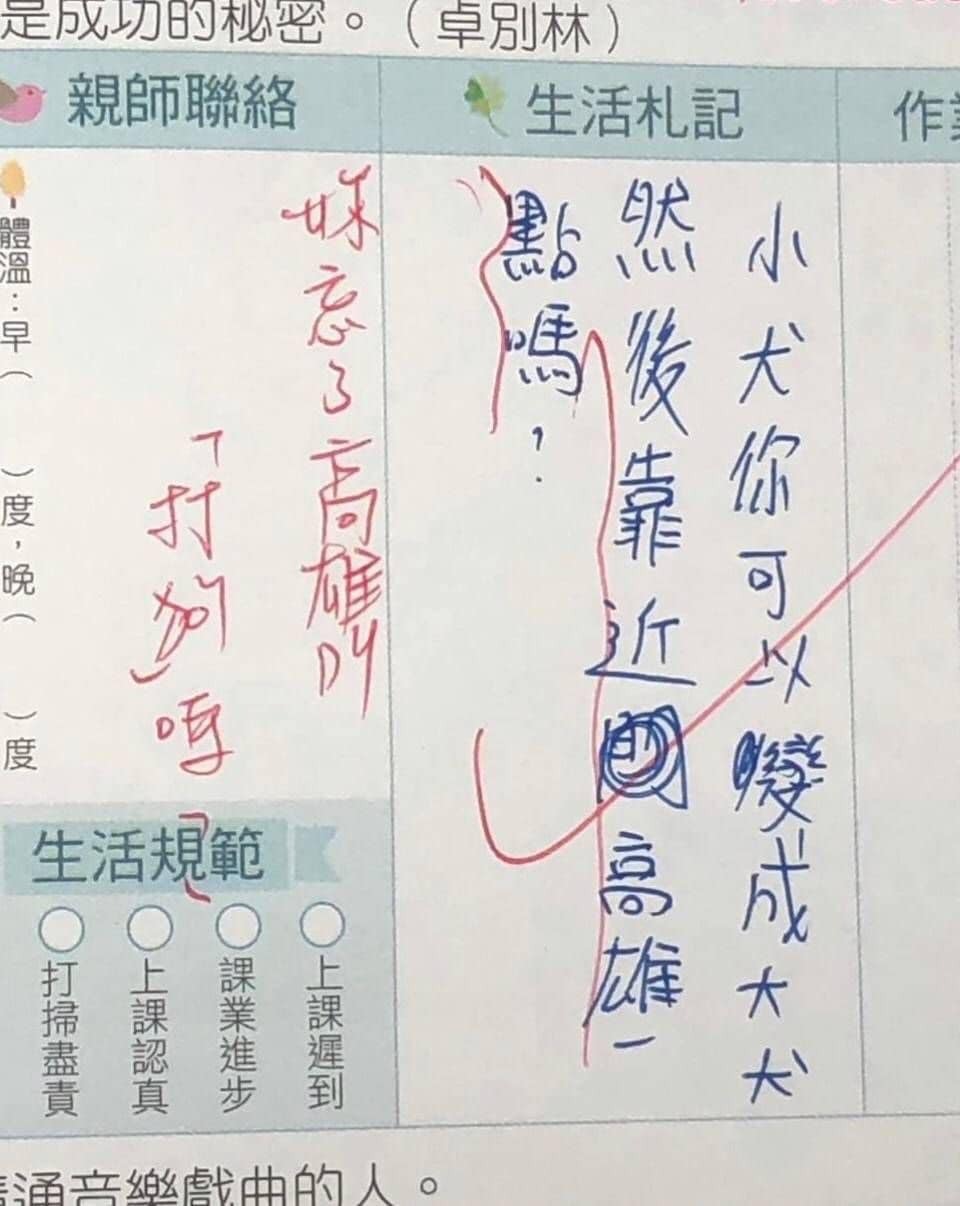 是成功的秘密。(卓別林)
親師聯絡
生活札記
作業
小犬你可以變成大犬
然後靠近高雄一
點嗎?
妳忘了高雄叫
「打狗」嗎
體溫:早( )度,晚( )度
生活規範
上課遲到
課業進步
上課認真
打掃盡責
通音樂戲曲的人。